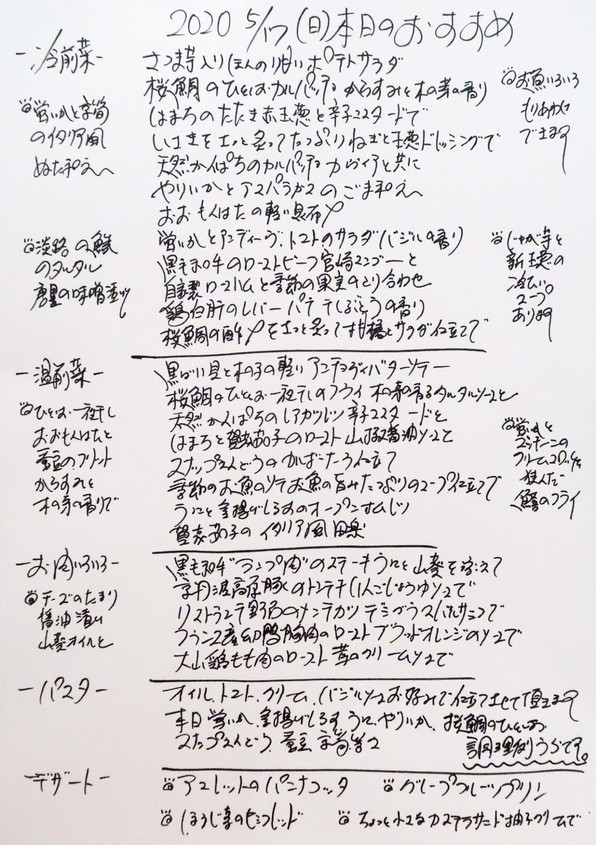 2020 5/17(日)本日のおすすめ
-冷前菜-
さつま芋入りほんのり甘いポテトサラダ
桜鯛のひとしおカルパッチョ からすみと木の芽の香り
はまちのたたき赤玉葱と辛子マスタードで
いさきをさっと炙ってたっぷりねぎと玉葱ドレッシングで
天然かんぱちのカルパッチョ キャヴィアと共に
やりいかとアスパラガスのごま和え
おおもんはたの軽い昆布〆
蛍いかとアンディーヴ、トマトのサラダ バジルの香り
黒毛和牛のローストビーフ 宮崎マンゴーと
自家製ロースハムと季節の果実のとり合わせ
鶏白肝のレバーパテ 干しぶどうの香り
桜鯛の酢〆をさっと炙って柑橘とサラダ仕立で
蛍いかと芋筍
のイタリア風
ぬた和え
淡路の鯵
のタルタル
お魚いろいろ
もりあわせ
できます
じゃが芋と
新玉葱の
冷たい
スープ
あります
-温前菜-
黒ばい貝と木の子の軽いアンチョビバターソテー
桜鯛のひとしお一夜干しのフライ 木の芽香るタルタルソースと
天然かんぱちのレアカツレツ 辛子マスタードと
はまちと賀茂茄子のロースト 山椒醤油ソースと
スナップえんどうのかばーたう仕立て
季節のお魚のソテ お魚の旨みたっぷりのスープ仕立で
うにと釜揚げしらすのオープンオムレツ
賀茂茄子のイタリア風田楽
ひとしお一夜干し
おおもんはたと
蚕豆のフリット
からすみと
木の芽の香りで
蛍いかと
ズッキーニの
クリームコロッケを
挟んだ
鯵のフライ
-お肉いろいろ-
黒毛和牛"ランプ肉"のステーキ うにと山葵を添えて
京丹波高原豚のトンテキ りんごじょうゆソースで
リストランテ野呂のメンチカツ デミグラス バルサミコで
フランス産鴨胸肉のロースト ブラッドオレンジのソースで
大山鶏もも肉のロースト 茸のクリームソースで
チーズのたまり
醤油漬け
山葵オイルと
-パスタ-
オイル、トマト、クリーム、バジルソースお好みで仕立てさせて頂きます
本日 蛍いか、釜揚げしらす、うに、やりいか、桜鯛のひとしお
スナップえんどう、蚕豆、芋筍など
調理なりうらです。
-デザート-
アマレットのパンナコッタ
グレープフルーツプリン
ほうじ茶のセミフレッド
ちょっと小さなカステラサンド 柚子クリームで